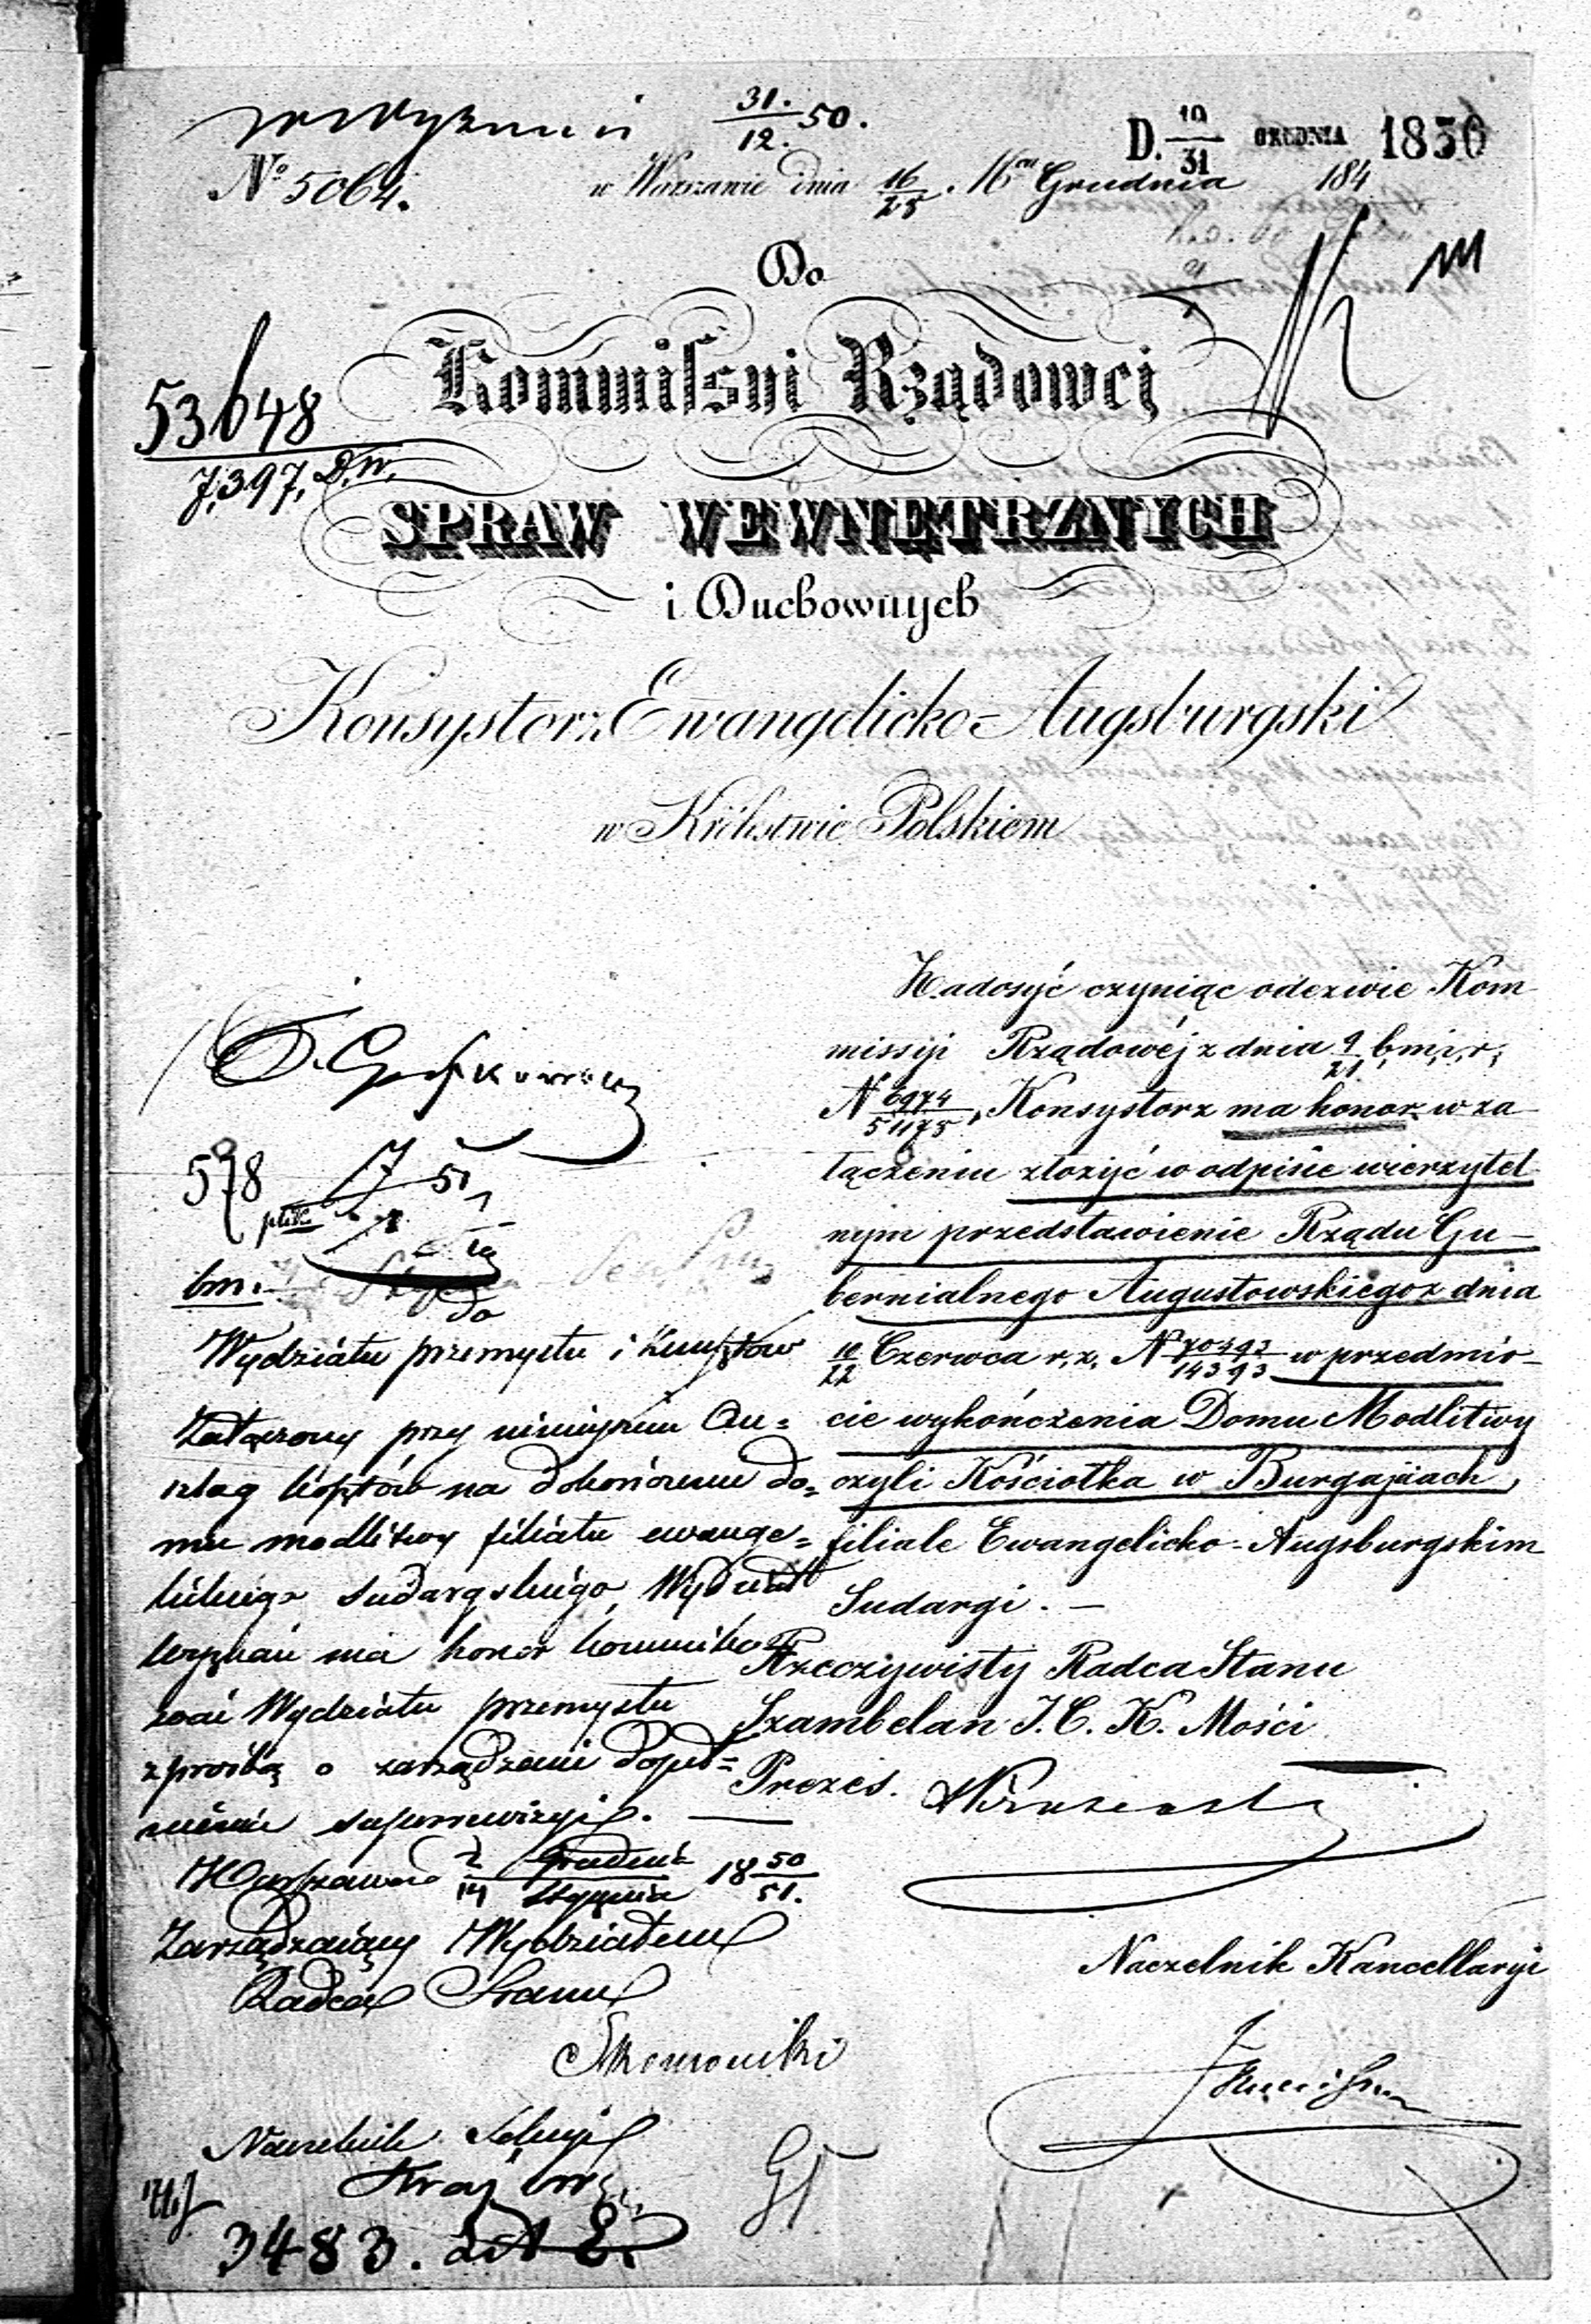 31./12. 50.
D. 19/31 GRUDNIA 1850
No 5064.
w Warszawie dnia 16/25. Grudnia 184
Do
Kommissyi Rządowej
53648
7,397, D.W.
SPRAW WEWNĘTRZNYCH
i Duchownych
Konsystorz Ewangelicko-Augsburgski
w Królestwie Polskiem
Zadosyć czyniąc odezwie Kom
missyi Rządowéj z dnia 9/21 b, m, i, r,
N 6974/51175, Konsystorz ma honor w za
łączeniu złożyć w odpisie wierzytel
nym przedstawienie Rządu Gu-
bernialnego Augustowskiego z dnia
10/22 Czerwca r, z, N 70393/14393 w przedmio-
cie wykończenia Domu Modlitwy
czyli Kościołka w Burgajciach,
filiale Ewangelicko-Augsburgskim
Sudargi. —
Rzeczywisty Radca Stanu
Szambelan J. C. K. Mości
Prezes.
Naczelnik Kancellaryi
578
51
bm.
do
Wydziału przemysłu i Kunsztów
Załączony przy niniejszem An=
szlag kosztów na dokończenie do=
mu modlitwy filiału ewange=
lickiego Sudargskiego, Wydział
Wyznań ma honor kommuniko
wać Wydziału przemysłu
z prośbą o zarządzenie dopeł=
nienia superrewizyi. —
Warszawa 2/14 Grudnia/Stycznia 18 50/51.
Zarządzający Wydziałem
Radca Stanu
Naczelnik Sekcyi
3483. Lit E.